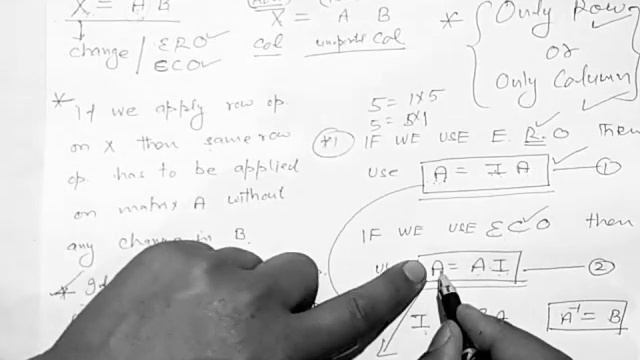 X = A B
change / ERO
ECO
X = A B
Col
Col
* Only Row
or
Only Column
* If we apply row op.
on X then same row
op. has to be applied
on matrix A without
any change in B.
5 = 1x5
5 = 5x1
*1 IF WE USE E.R.O Then
use A = I A — 1
IF WE USE ECO then
A = A I — 2
I
A⁻¹ = B